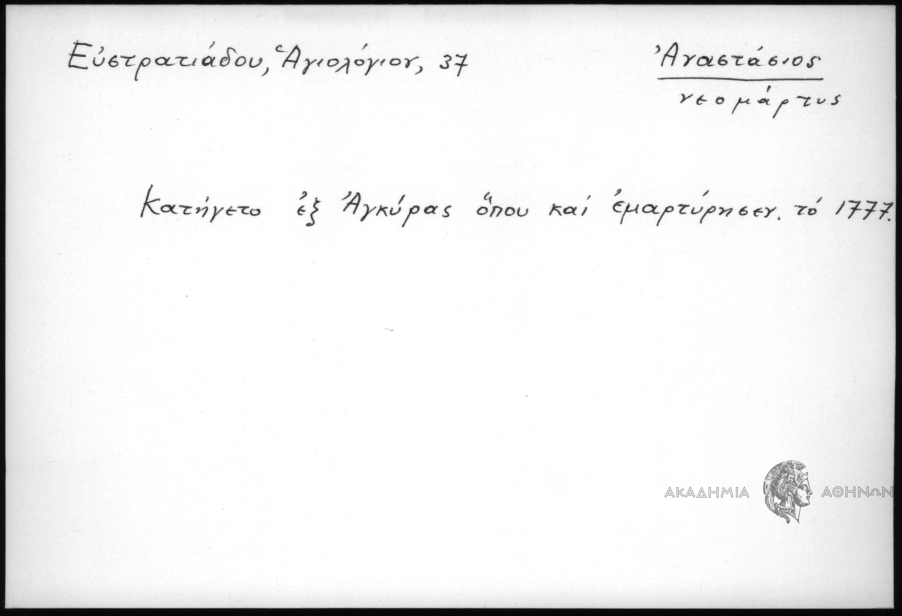 Εὐστρατιάδου, Ἁγιολόγιον, 37
Ἀναστάσιος
νεομάρτυς
Κατήγετο ἐξ Ἀγκύρας ὅπου καί ἐμαρτύρησεν. τό 1777.
ΑΚΑΔΗΜΙΑ ΑΘΗΝΩΝ